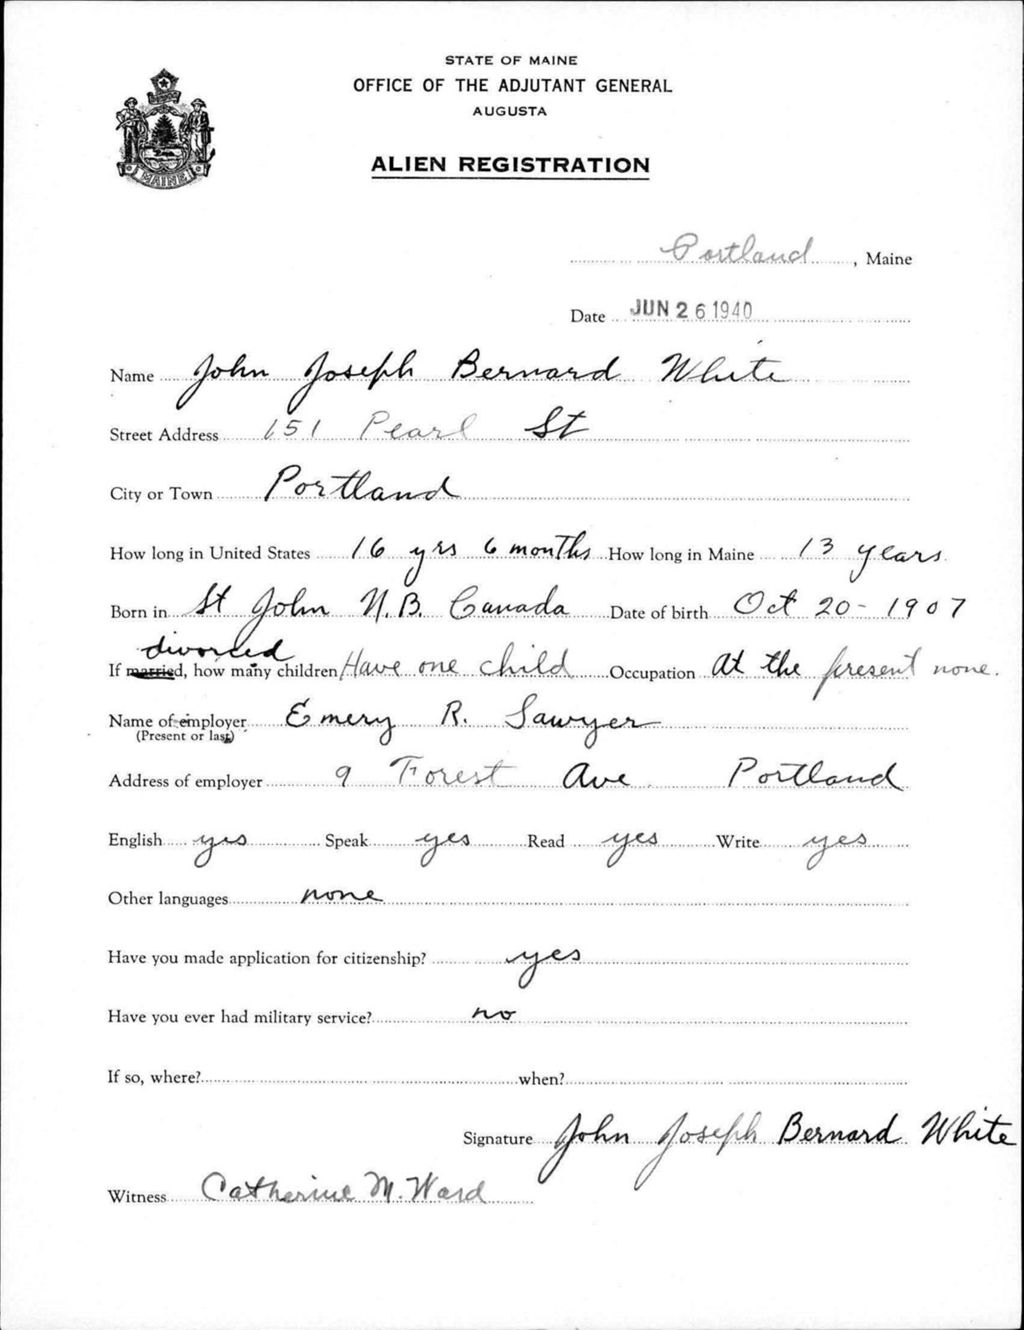 STATE OF MAINE
OFFICE OF THE ADJUTANT GENERAL
AUGUSTA
ALIEN REGISTRATION
MAINE
Portland, Maine
Date JUN 26 1940
Name John Joseph Bernard White
Street Address 151 Pearl St
City or Town Portland
How long in United States 16 yrs 6 months How long in Maine 13 years
Born in St John N.B. Canada Date of birth Oct 20 - 1907
divorced
If married, how many children Have one child Occupation At the present none.
Name of employer Emery R. Sawyer
(Present or last)
Address of employer 9 Forest Ave. Portland
English yes Speak yes Read yes Write yes
Other languages none
Have you made application for citizenship? yes
Have you ever had military service? no
If so, where? when?
Signature John Joseph Bernard White
Witness Catherine M. Ward